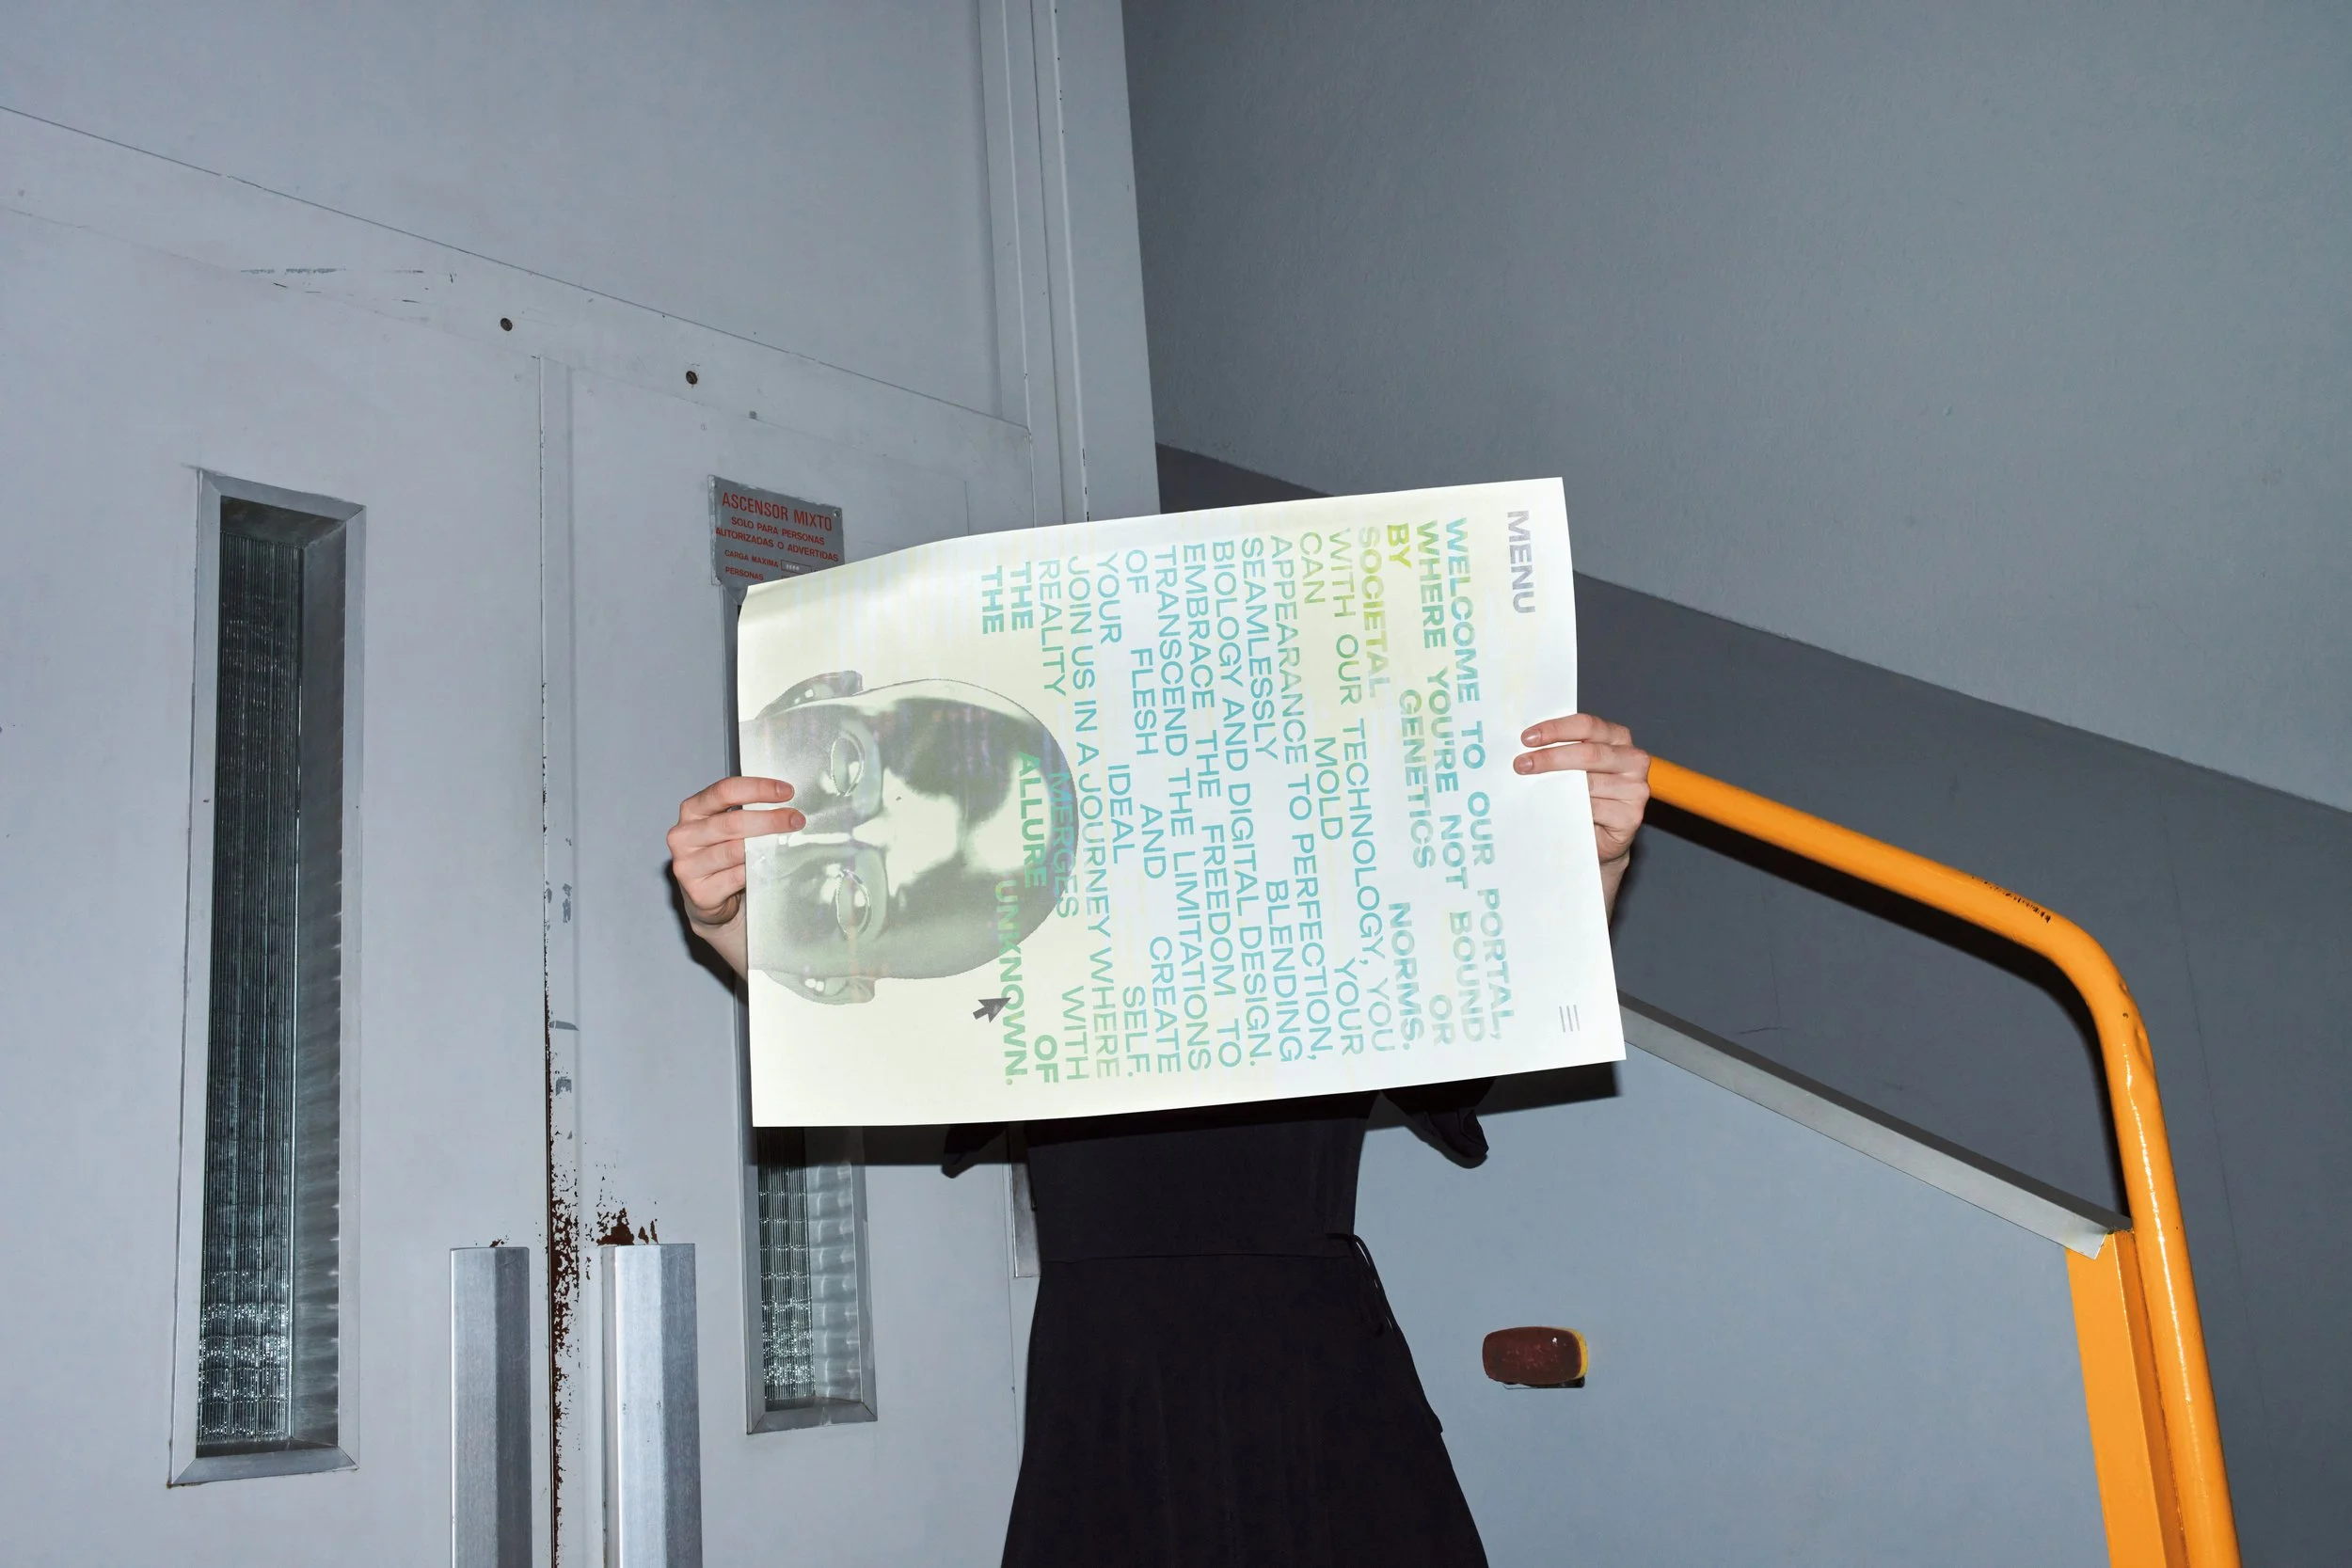 ASCENSOR MIXTO
SOLO PARA PERSONAS
AUTORIZADAS O ADVERTIDAS
CARGA MAXIMA
PERSONAS
MENU
WELCOME TO OUR PORTAL,
WHERE YOURE NOT BOUND
BY GENETICS OR
SOCIETAL NORMS.
WITH OUR TECHNOLOGY, YOU
CAN MOLD YOUR
APPEARANCE TO PERFECTION,
SEAMLESSLY BLENDING
BIOLOGY AND DIGITAL DESIGN.
EMBRACE THE FREEDOM TO
TRANSCEND THE LIMITATIONS
OF FLESH AND CREATE
YOUR IDEAL SELF.
JOIN US IN A JOURNEY WHERE
REALITY MERGES WITH
THE ALLURE OF
THE UNKNOWN.